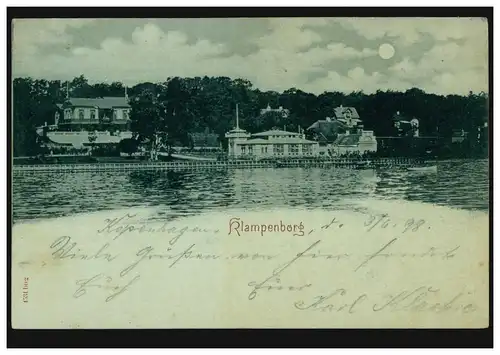 Klampenborg
Kopenhagen, d. 5/6. 98.
Viele Grüßen von hier sendet
Euch Euer
Karl